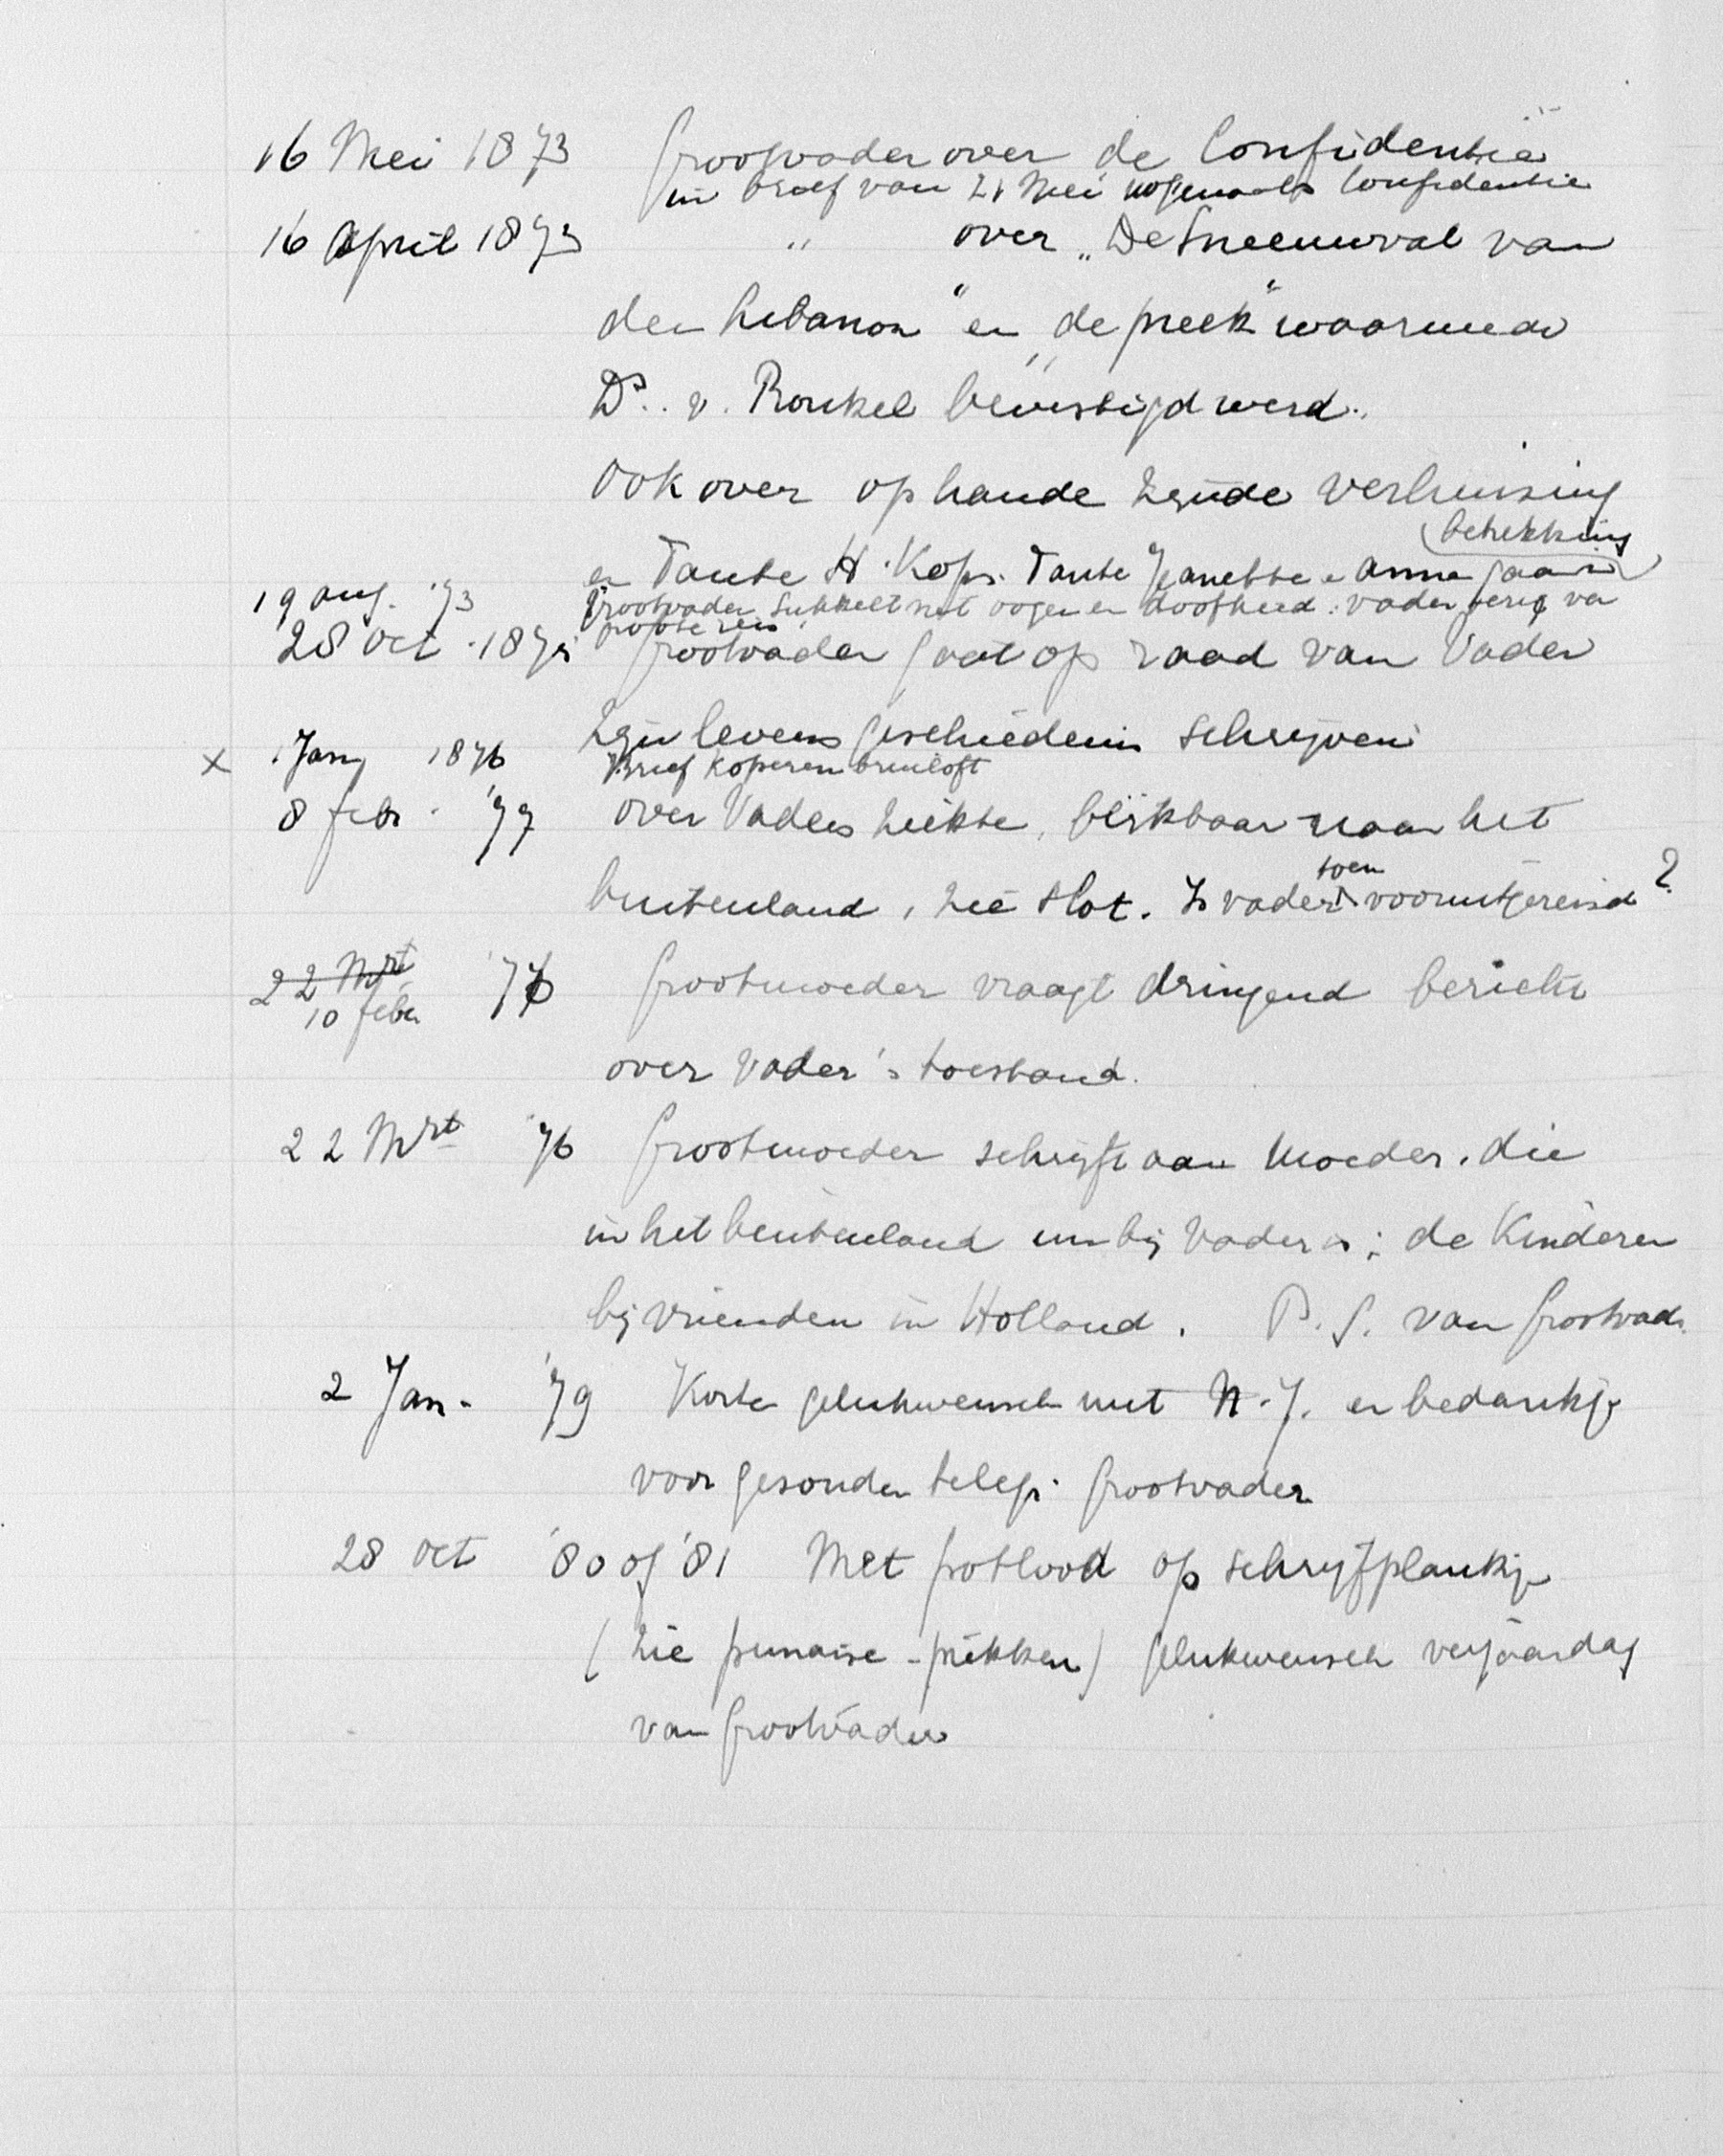 16 Mei 1873 Grootvader over de Confidentiën
in brief van 21 Mei nogmaals Confidentie
16 April 1873 " over „De Sneeuwval van
den Lebanon" en „de preek" waarmede
Ds. v. Ronkel bevestigd werd.
Ook over ophande zijnde verhuizing
betrekking
en Tante H. Kops. Tante Jeanette en Anna gaan in
19 aug. '73 Grootvader sukkelt met oogen en doofheid: vader terug van
groote reis.
28 Oct. 1875 Grootvader gaat op raad van Vader
zijn levensgeschiedenis schrijven
x 1 Jan 1876 Brief koperen bruiloft
8 febr. '77 over Vaders ziekte, blijkbaar naar het
toen
buitenland, zie slot. Is vader vooruitgereisd?
22 Mrt
10 febr. '76 Grootmoeder vraagt dringend bericht
over Vader's toestand.
22 Mrt '76 Grootmoeder schrijft aan Moeder, die
in het buitenland bij Vader is; de Kinderen
bij vrienden in Holland. P.S. van Grootvad.
2 Jan. '79 Korte gelukwensch met N.J. en bedankje
voor gezonden telegr. Grootvader
28 Oct '80 of '81 Met potlood op schrijfplankje
(zie punaise-prikken) gelukwensch verjaardag
van Grootvader